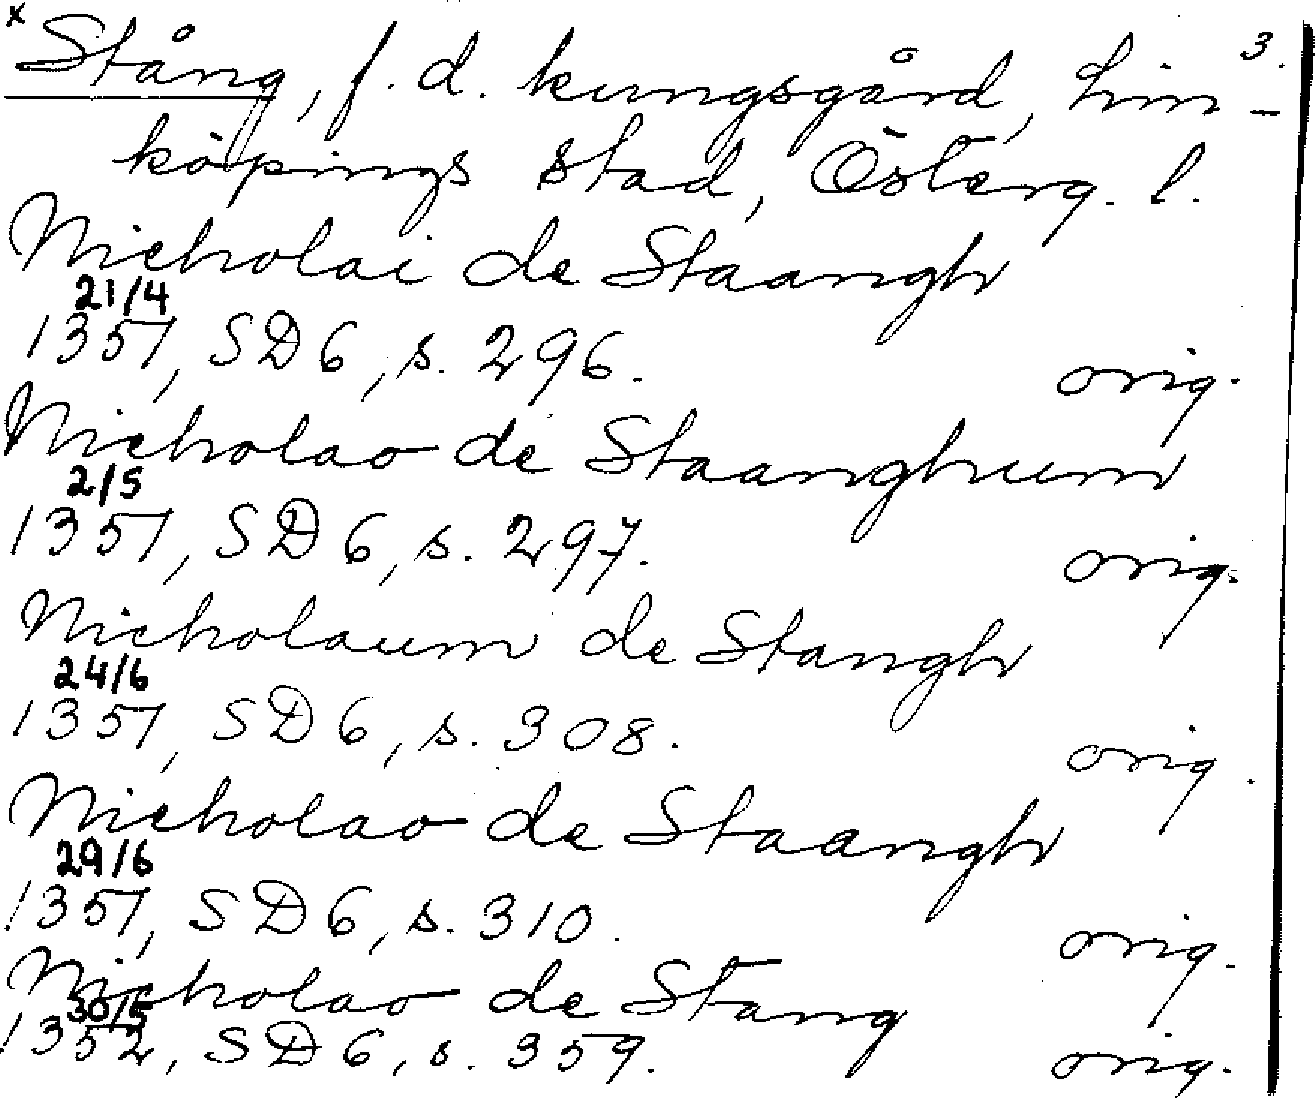 x Stång, f. d. kungsgård, Lin- 3.
köpings stad, Österg. l.
Nicholai de Staangh
21/4
1351, SD 6, s. 296. orig.
Nicholao de Staanghum
2/5
1351, SD 6, s. 297. orig.
Nicholaum de Stangh
24/6
1351, SD 6, s. 308. orig.
Nicholao de Staangh
29/6
1351, SD 6, s. 310. orig.
Nicholao de Stang
1352, SD 6, s. 359. orig.